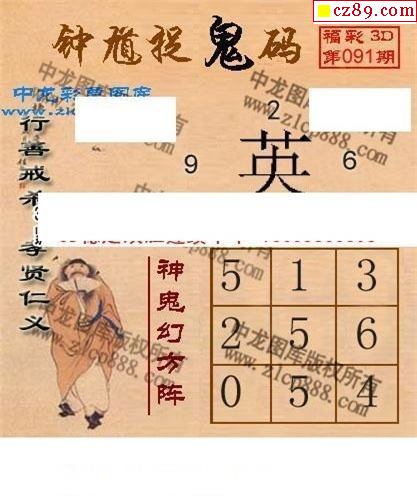 cz89.com
钟馗捉鬼码
福彩3D
第091期
中龙彩草图库
中龙图库版权所有
2
9
英
6
行善戒杀
孝贤仁义
神鬼幻方阵
5 1 3
2 5 6
0 5 4
中龙图库版权所有
www.zlcp888.com